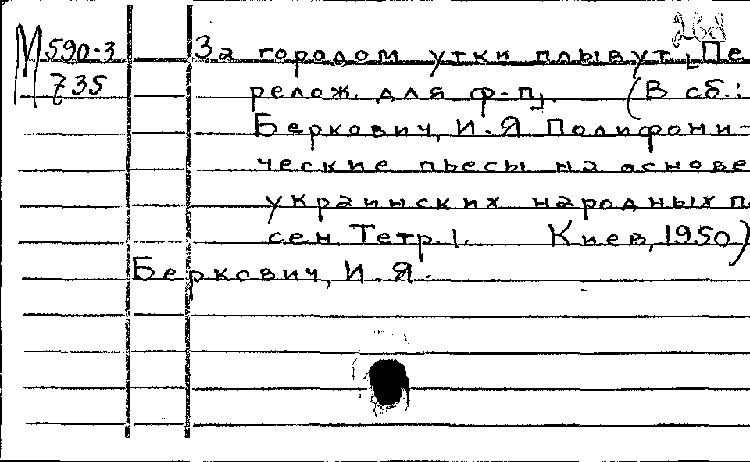 М 590-3 За городом утки плывут [Пе
735 релож. для ф-п]. (В сб.:
Беркович, И.Я Полифони-
ческие пьесы на основе
украинских народных п
сен. Тетр. 1. Киев, 1950)
Беркович, И.Я.